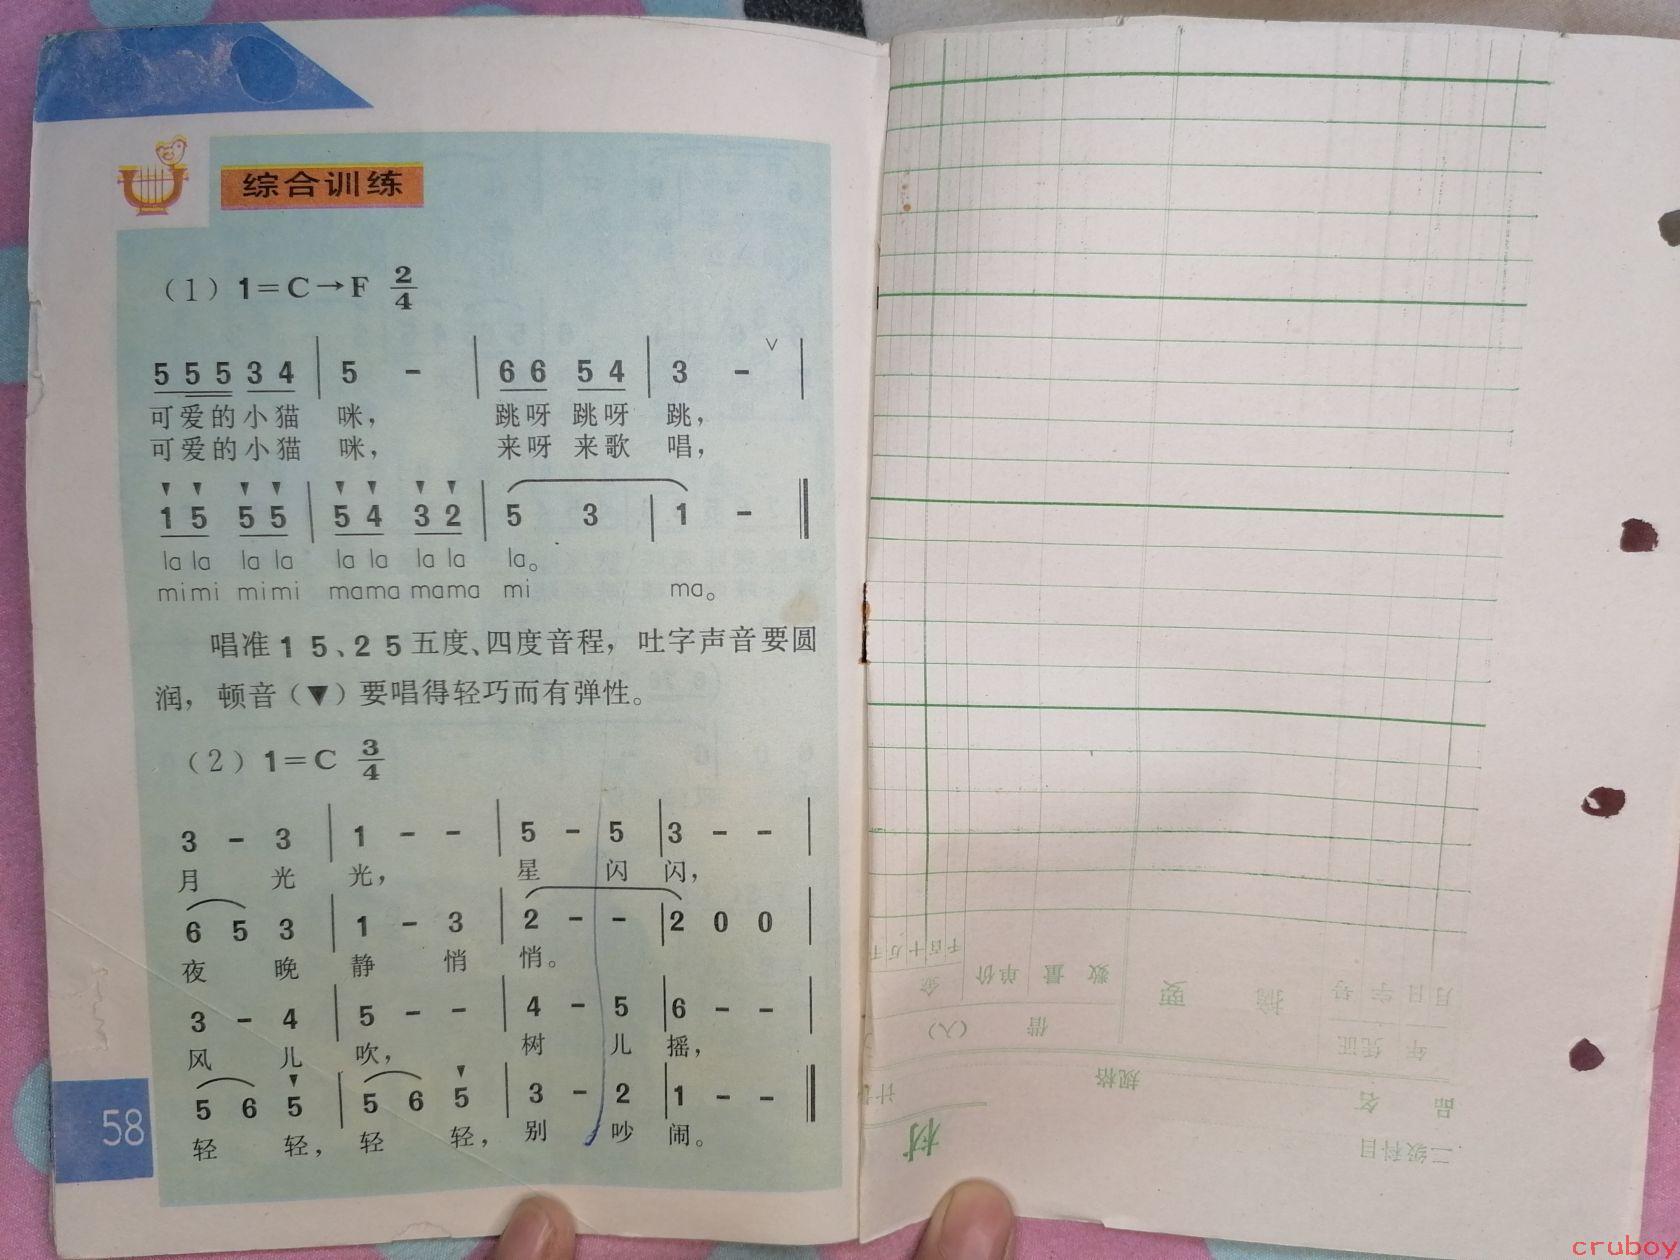 综合训练
（1）1=C→F 2/4
5 5 5 3 4 | 5 - | 6 6 5 4 | 3 - ∨ |
可爱的小猫 咪， 跳呀 跳呀 跳，
可爱的小猫 咪， 来呀 来歌 唱，
▼ ▼ ▼ ▼ ▼ ▼ ▼ ▼
1 5 5 5 | 5 4 3 2 | 5 3 | 1 - ‖
la la la la la la la la la。
mimi mimi mama mama mi ma。
唱准 1 5、2 5 五度、四度音程，吐字声音要圆
润，顿音（▼）要唱得轻巧而有弹性。
（2）1=C 3/4
3 - 3 | 1 - - | 5 - 5 | 3 - - |
月 光 光， 星 闪 闪，
6 5 3 | 1 - 3 | 2 - - | 2 0 0 |
夜 晚 静 悄 悄。
3 - 4 | 5 - - | 4 - 5 | 6 - - |
风 儿 吹， 树 儿 摇，
▼ ▼
5 6 5 | 5 6 5 | 3 - 2 | 1 - - ‖
轻 轻， 轻 轻， 别 吵 闹。
58
千百十万千
金 单价 量 数 要 摘 号 字 日 月
（入） 借 凭证 年
计 规格 名 品
材
二级科目
cruboy